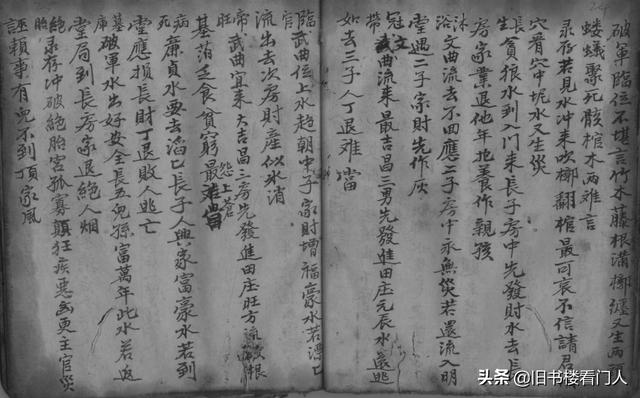 破軍臨位不堪言竹木藤根满槨纏又生両
蝼蟻聚死骸棺木两难言
录存若見水冲来吹槨翻棺最可哀不信請君
穴看穴中坭水又生災
生貧狼水到入门来長子房中先發財水去長
房家業退他年抱养作親孩
沐浴文曲流去不回應二子房中永無災若還流入明
堂遇二子家財先作灰
冠帶文曲流来最吉昌二男先發進田庄元辰水逃
如去三子人丁退难當
臨官武曲位上水趋朝中子家財增福豪水若湮亡
流出去次房財產似水消
帝旺武曲宜来大吉昌三房先發進田庄旺方流
基落乏食貧窮最怨上蒼
病死廉貞水要去滔亡長子人興家富豪水若到
堂應損長財丁退敗人逃亡
墓庫破軍水出好安全長五兒孫富萬年此水若返
堂局到長房家退絕人烟
絕胎录存冲破絕胎宫孤寡顛狂疾患更主官災
誣賴事有兒不到頂家風
头条 @旧书楼看门人